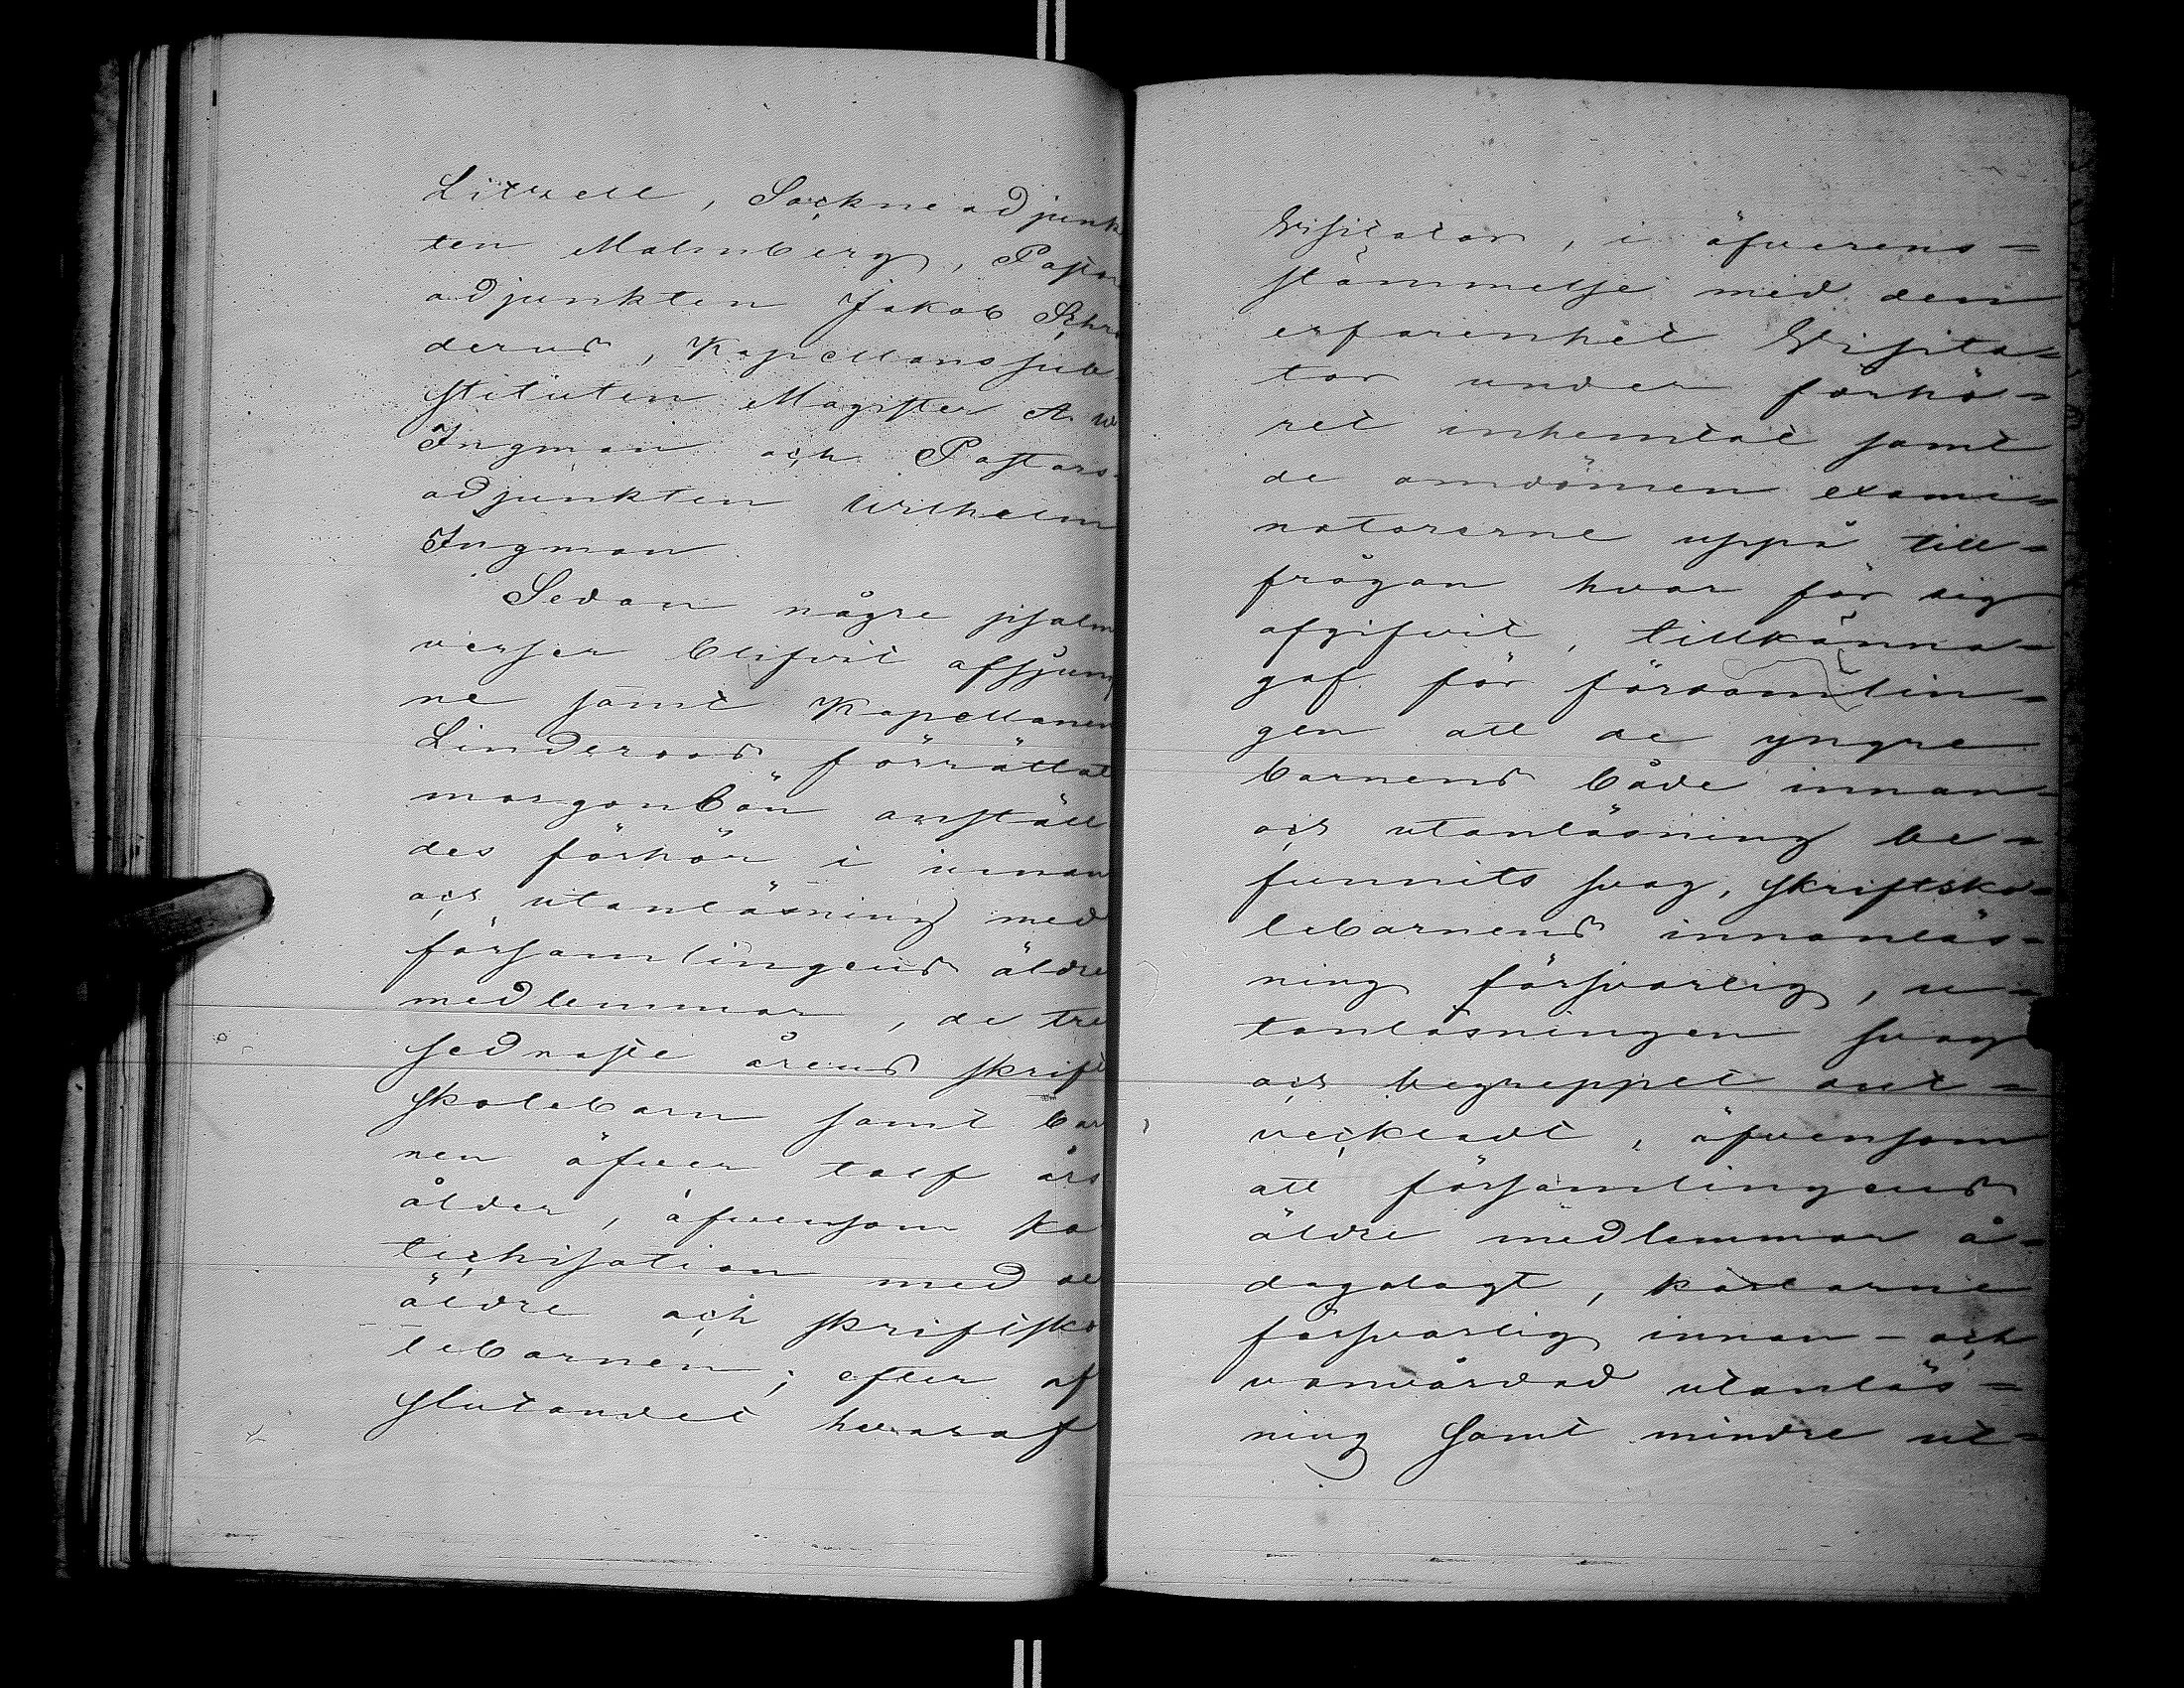 Litzell, Sockneadjunk
ten Malmberg, Pastors
adjunkten Jakob Schro
derus, Kapellanssub-
stituten Magister A. W.
Ingman och Pastors-
adjunkten Wilhelm
Ingman.
Sedan någre psalm
verser blifvit afsjung
ne samt Kapellanen
Linderoos förrättat
morgonbön anställ
des förhör i innan
och utanläsning med
församlingens äldre
medlemmar, de tre
sednaste årens skrift
skolebarn samt bar
nen öfver tolf års
ålder, äfvensom ka
techisation med de
äldre och skriftsko
lebarnen; efter af
slutandet hvaraf
Visitator, i öfverens-
stämmelse med den
erfarenhet Visita-
tor under förhö-
ret inhemtat samt
de omdömen exami-
natorerne uppå till-
frågan hvar för sig
afgifvit, tillkänna-
gaf för församlin-
gen att de yngre
barnens både innan-
och utanläsning be-
funnits svag, skriftsko-
lebarnens innanläs-
ning försvarlig, u-
tanläsningen svag
och begreppet out-
veckladt, äfvensom
att församlingens
äldre medlemmar å-
dagalagt, karlarne
försvarlig innan- och
vanvårdad utanläs-
ning samt mindre ut-